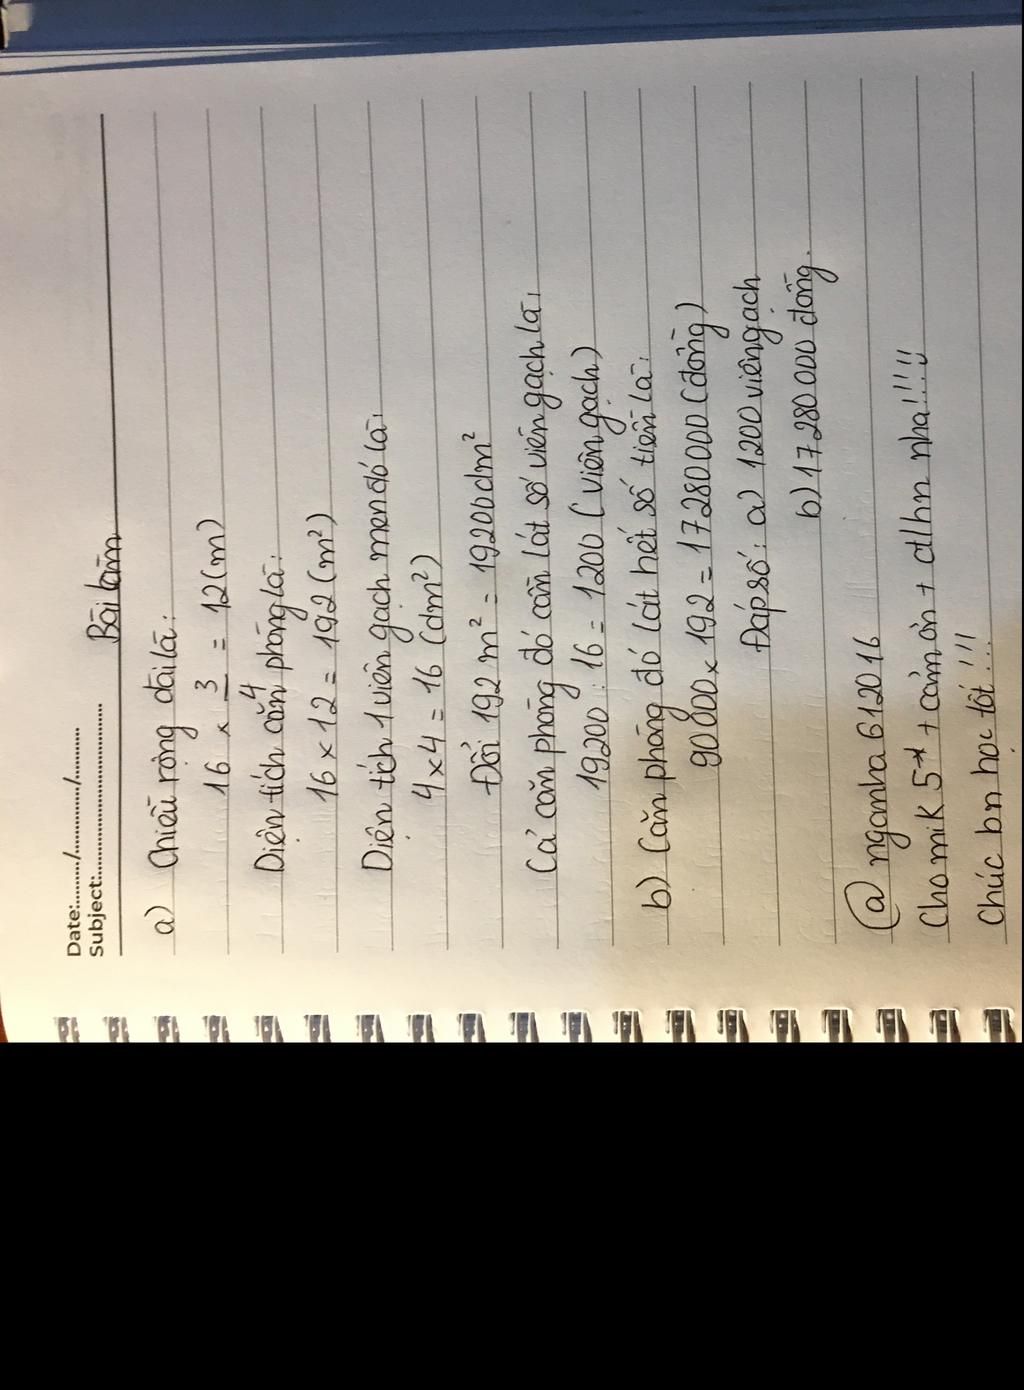 Date:........./............../.........
Subject:........................................
Bài làm
a) Chiều rộng dài là:
16 × 3/4 = 12 (m)
Diện tích căn phòng là:
16 × 12 = 192 (m²)
Diện tích 1 viên gạch men đó là:
4 × 4 = 16 (dm²)
Đổi 192 m² = 19200 dm²
Cả căn phòng đó cần lát số viên gạch là:
19200 : 16 = 1200 (viên gạch)
b) Căn phòng đó lát hết số tiền là:
90 000 × 192 = 17 280 000 (đồng)
Đáp số: a) 1200 viên gạch
b) 17 280 000 đồng.
@ nganha612016
Cho mik 5* + cảm ơn + ctlhn nha!!!!!
Chúc bn học tốt!!!